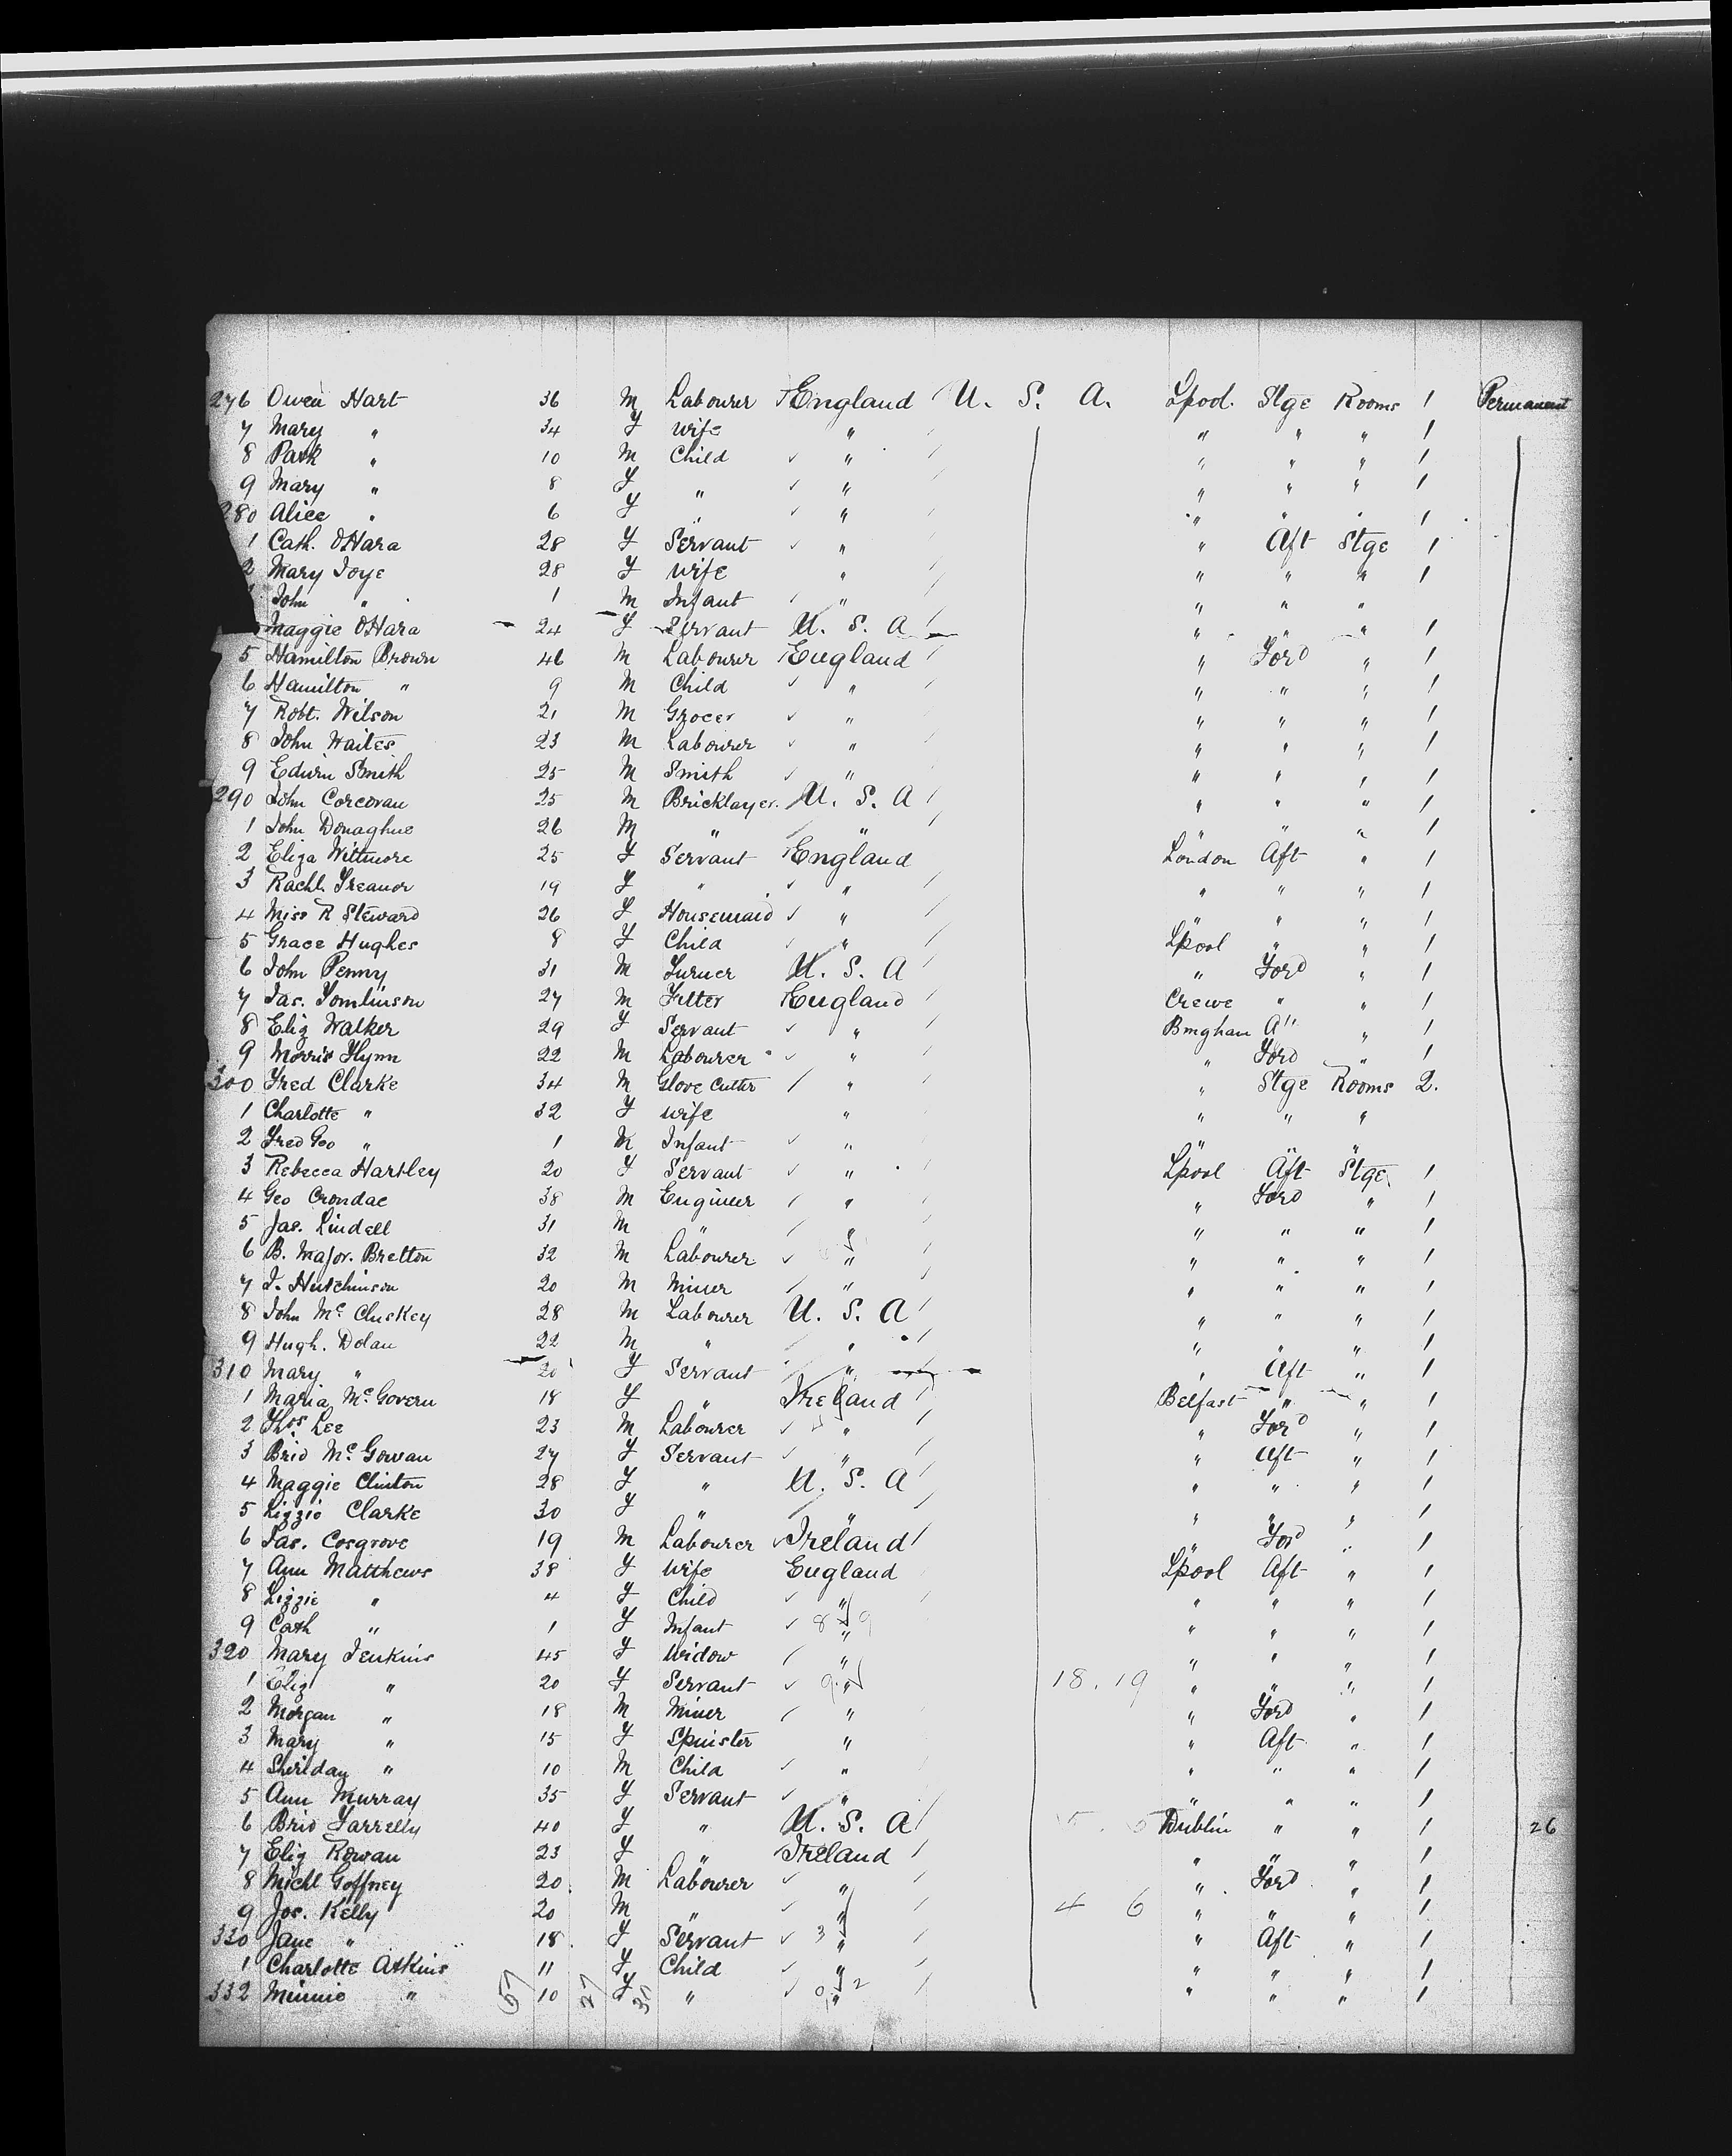 276 Owen Hart 36 M Labourer England U. S. A. Lpool. Stge Rooms 1 Permanent
7 Mary " 34 F Wife " " " " 1
8 Park " 10 M Child " " " " 1
9 Mary " 8 F " " " " " 1
280 Alice " 6 F " " " " " 1
1 Cath. OHara 28 F Servant " " Aft Stge 1
2 Mary Joye 28 F Wife " " " " 1
John " 1 M Infant " " " "
Maggie OHara 24 F Servant U. S. A " " " 1
5 Hamilton Brown 46 M Labourer England " Ford " 1
6 Hamilton " 9 M Child " " " " 1
7 Robt. Wilson 21 M Grocer " " " " 1
8 John Waites 23 M Labourer " " " " 1
9 Edwin Smith 25 M Smith " " " " 1
290 John Corcoran 25 M Bricklayer. U. S. A " " " 1
1 John Donaghue 26 M " " " " " 1
2 Eliza Wittmore 25 F Servant England London Aft " 1
3 Rachl. Treanor 19 F " " " " " 1
4 Miss R Steward 26 F Housemaid " " " " 1
5 Grace Hughes 8 F Child " Lpool " " 1
6 John Penny 31 M Turner U. S. A " Ford " 1
7 Jas. Tomlinson 27 M Fitter England Crewe " " 1
8 Eliz Walker 29 F Servant " Bmghan A" " 1
9 Morris Flynn 22 M Labourer " " Ford " 1
300 Fred Clarke 34 M Glove Cutter " " Stge Rooms 2.
1 Charlotte " 32 F Wife " " " "
2 Fred Geo " 1 M Infant " " " "
3 Rebecca Hartley 20 F Servant " Lpool Aft Stge 1
4 Geo Crondac 38 M Engineer " " Ford " 1
5 Jas. Lindell 31 M " " " " " 1
6 B. Major. Bretton 32 M Labourer " " " " 1
7 J. Hutchinson 20 M Miner " " " " 1
8 John Mc Cluskey 28 M Labourer U. S. A " " " 1
9 Hugh. Dolan 22 M " " " " " 1
310 Mary " 20 F Servant " " Aft " 1
1 Maria Mc Govern 18 F " Ireland Belfast " " 1
2 Thos. Lee 23 M Labourer " " Ford " 1
3 Brid Mc Gowan 27 F Servant " " Aft " 1
4 Maggie Clinton 28 F " U. S. A " " " 1
5 Lizzie Clarke 30 F " " " " " 1
6 Jas. Cosgrove 19 M Labourer Ireland " Ford " 1
7 Ann Matthews 38 F Wife England Lpool Aft " 1
8 Lizzie " 4 F Child " " " " 1
9 Cath " 1 F Infant 8 " 9 " " " 1
320 Mary Jenkins 45 F Widow " " " " 1
1 Eliz " 20 F Servant 9 " 18. 19 " " " 1
2 Morgan " 18 M Miner " " Ford " 1
3 Mary " 15 F Spinster " " Aft " 1
4 Sheridan " 10 M Child " " " " 1
5 Ann Murray 35 F Servant " " " " 1
6 Brid Farrelly 40 F " U. S. A Dublin " " 1 26
7 Eliz Rowan 23 F " Ireland " " " 1
8 Michl Goffney 20 M Labourer " " Ford " 1
9 Jos. Kelly 20 M " " 4 6 " " " 1
330 Jane " 18 F Servant 3 " " Aft " 1
1 Charlotte Atkins 11 F Child " " " " 1
332 Minnie " 10 F " 0 " 2 " " " 1